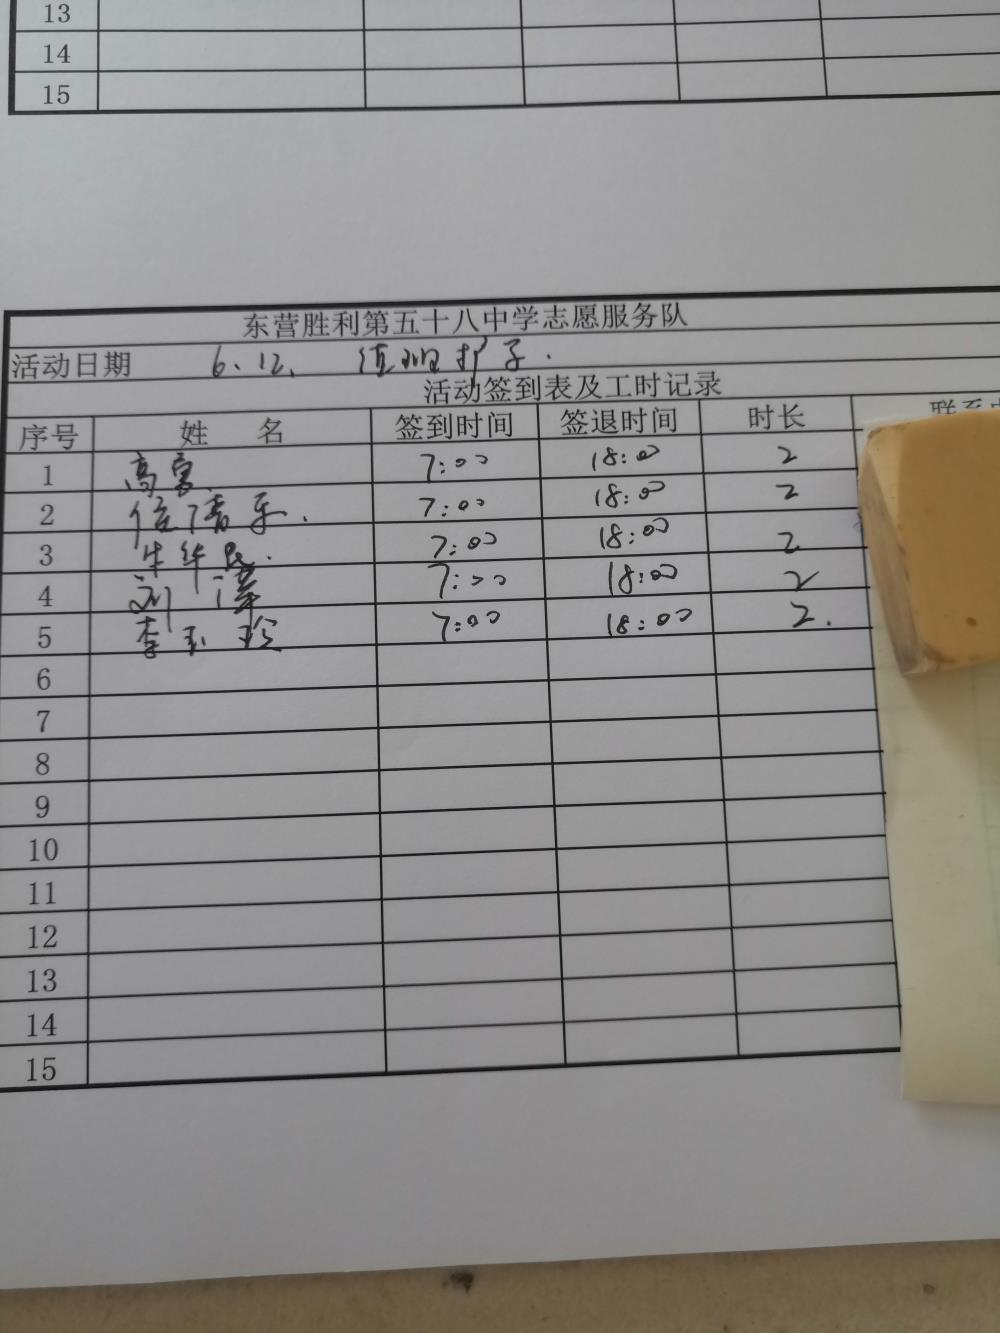 13
14
15
东营胜利第五十八中学志愿服务队
活动日期 6.12. 值班护学.
活动签到表及工时记录
序号 姓 名 签到时间 签退时间 时长 联系
1 高 7:00 18:00 2
2 7:00 18:00 2
3 牛华 7:00 18:00 2
4 刘 7:00 18:00 2
5 李玉珍 7:00 18:00 2.
6
7
8
9
10
11
12
13
14
15